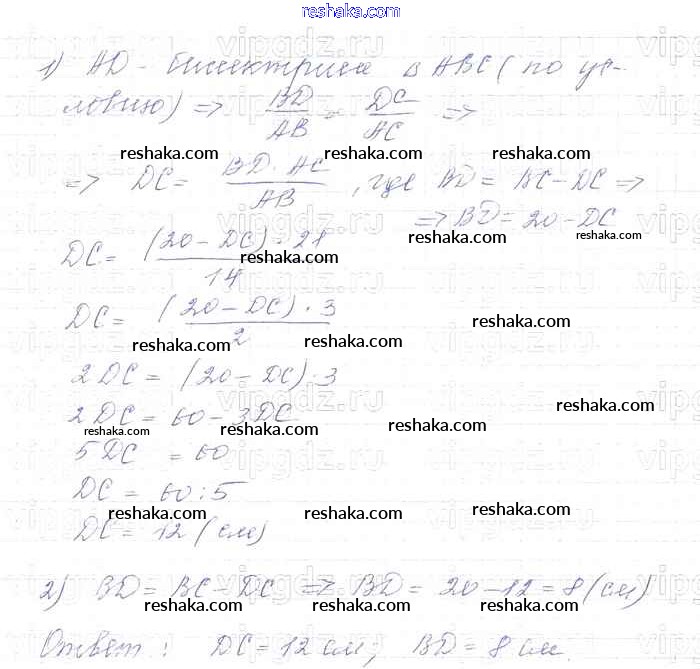 reshaka.com
1) AD - биссектриса в ABC (по ус-
ловию) => BD/AB = DC/AC =>
reshaka.com reshaka.com reshaka.com
=> DC = BD · AC / AB , где BD = BC - DC =>
=> BD = 20 - DC
reshaka.com reshaka.com
DC = (20 - DC) · 21 / 14
reshaka.com
DC = (20 - DC) · 3 / 2
reshaka.com reshaka.com reshaka.com
2DC = (20 - DC) · 3
2DC = 60 - 3DC
reshaka.com reshaka.com reshaka.com
5DC = 60
DC = 60 : 5
reshaka.com reshaka.com reshaka.com
DC = 12 (см)
2) BD = BC - DC => BD = 20 - 12 = 8 (см)
reshaka.com reshaka.com reshaka.com
Ответ: DC = 12 см; BD = 8 см.
reshaka.com
vipgdz.ru